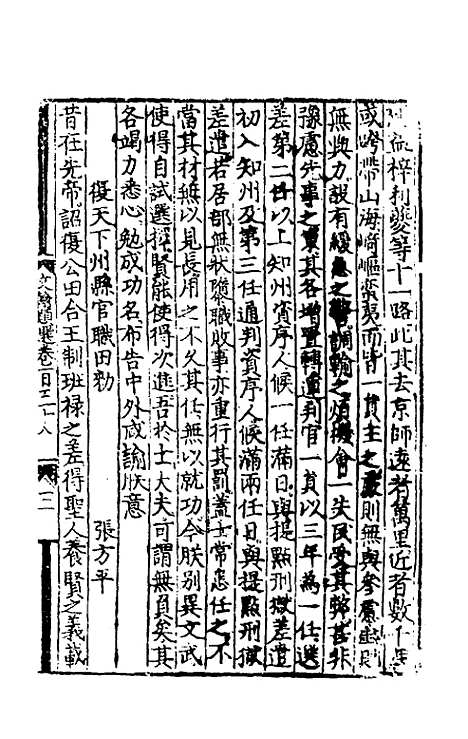 益梓利夔等十一路此其去京師遠者萬里近者數千里
或跨帶山海﨑嶇蠻夷而皆一員主之 則無與參慮
無與力設有緩急之警調輸之煩機會一失民受其弊甚非
豫慮先事之策其各增置轉運判官一員以三年為一任選
差第二任以上知州資序人候一任滿日與提點刑獄差遣
初入知州及第三任通判資序人候滿兩任日與提點刑獄
差遣若居部無狀隳職敗事亦重行其罰蓋士常患任之不
當其材無以見長用之不久其任無以就功今朕別異文武
使得自試選擇賢能使得次進吾於士大夫可謂無負矣其
各竭力悉心勉成功名布告中外咸諭朕意
復天下州縣官職田勑
張方平
昔在先帝詔復公田合王制班祿之差得聖人養賢之義載
文翰類選卷一百三十八